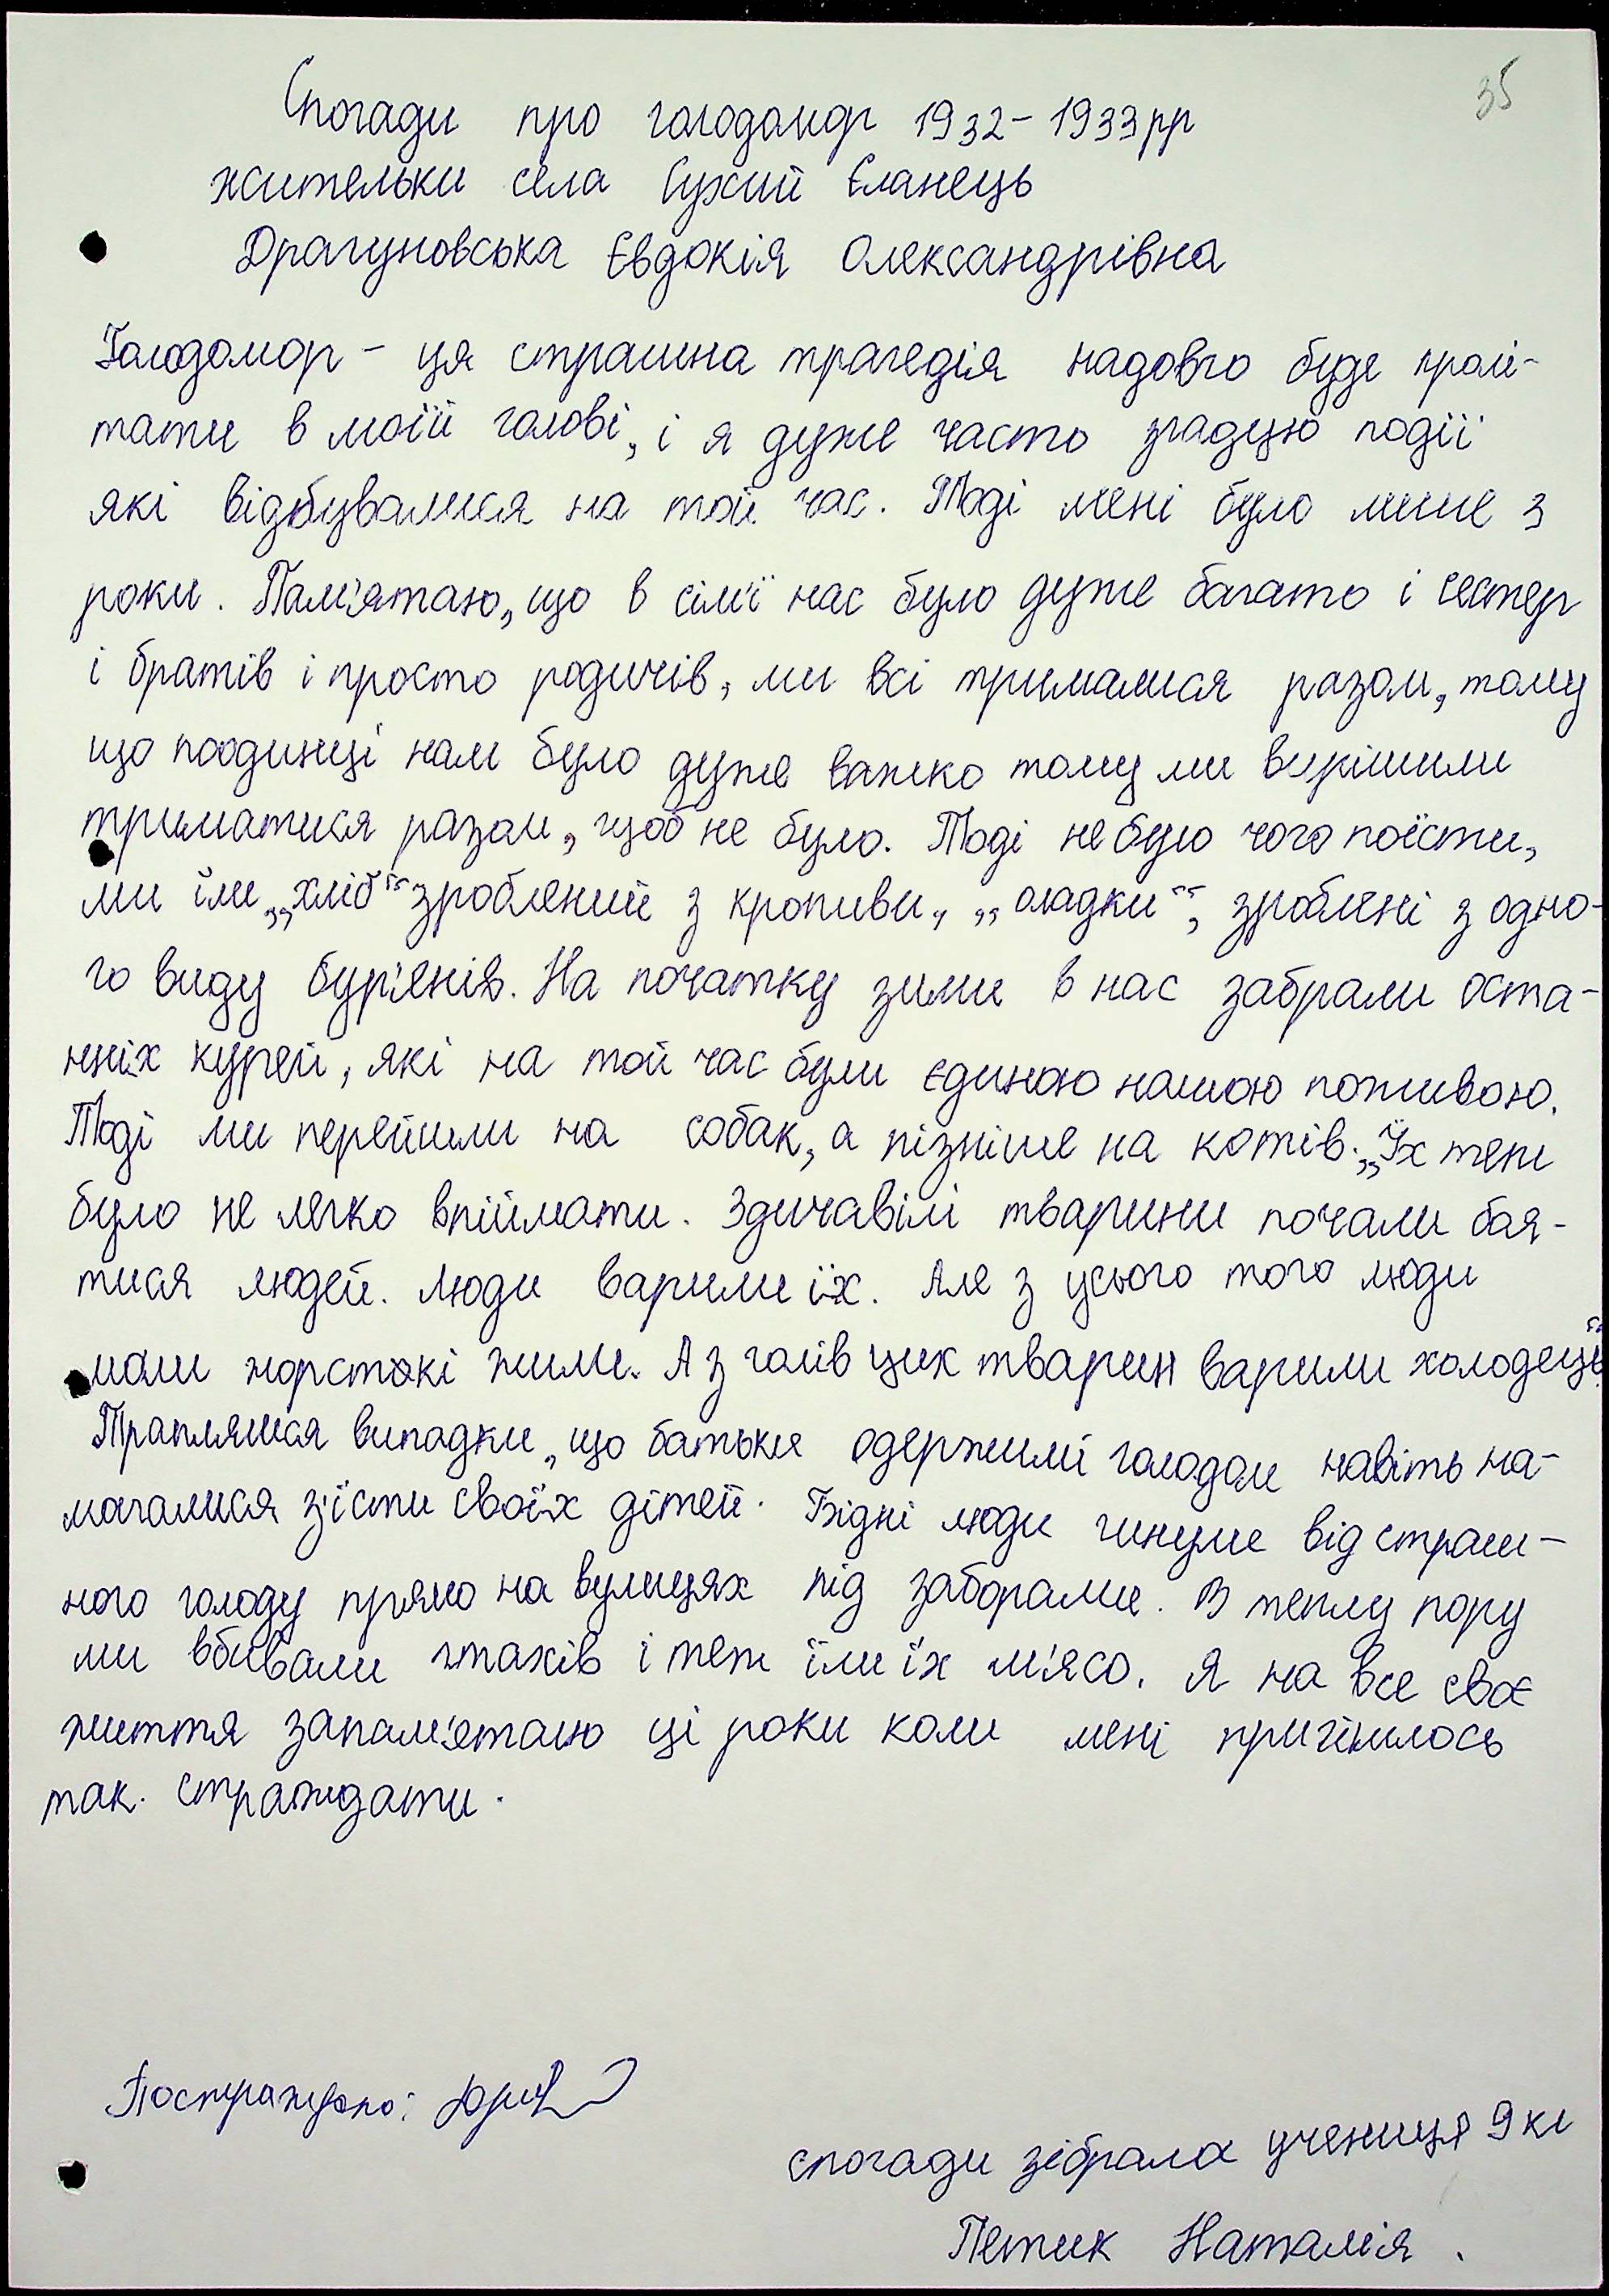 35
Спогади про голодомор 1932-1933рр
жительки села Сухий Єланець
Драгуновська Євдокія Олександрівна
Голодомор - ця страшна трагедія надовго буде пролі-
тати в моїй голові, і я дуже часто згадую події
які відбувалися на той час. Тоді мені було лише 3
роки. Пам'ятаю, що в сім'ї нас було дуже багато і сестер
і братів і просто родичів, ми всі трималися разом, тому
що поодинці нам було дуже важко тому ми вирішили
триматися разом, щоб не було. Тоді не було чого поїсти,
ми їли „хліб" зроблений з кропиви, „оладки", зроблені з одно-
го виду бур'янів. На початку зими в нас забрали оста-
нніх курей, які на той час були єдиною нашою поживою.
Тоді ми перейшли на собак, а пізніше на котів. „Їх теж
було не легко впіймати. Здичавілі тварини почали боя-
тися людей. Люди варили їх. Але з усього того люди
мали жорстокі жили. А з голів цих тварин варили холодець"
Траплялися випадки, що батьки одержимі голодом навіть на-
магалися з'їсти своїх дітей. Бідні люди гинули від страш-
ного голоду прямо на вулицях під заборами. В теплу пору
ми вбивали птахів і теж їли їх м'ясо. Я на все своє
життя запам'ятаю ці роки коли мені пригілилось
так. страждати.
спогади зібрала учениця 9 кл
Петик Наталія.